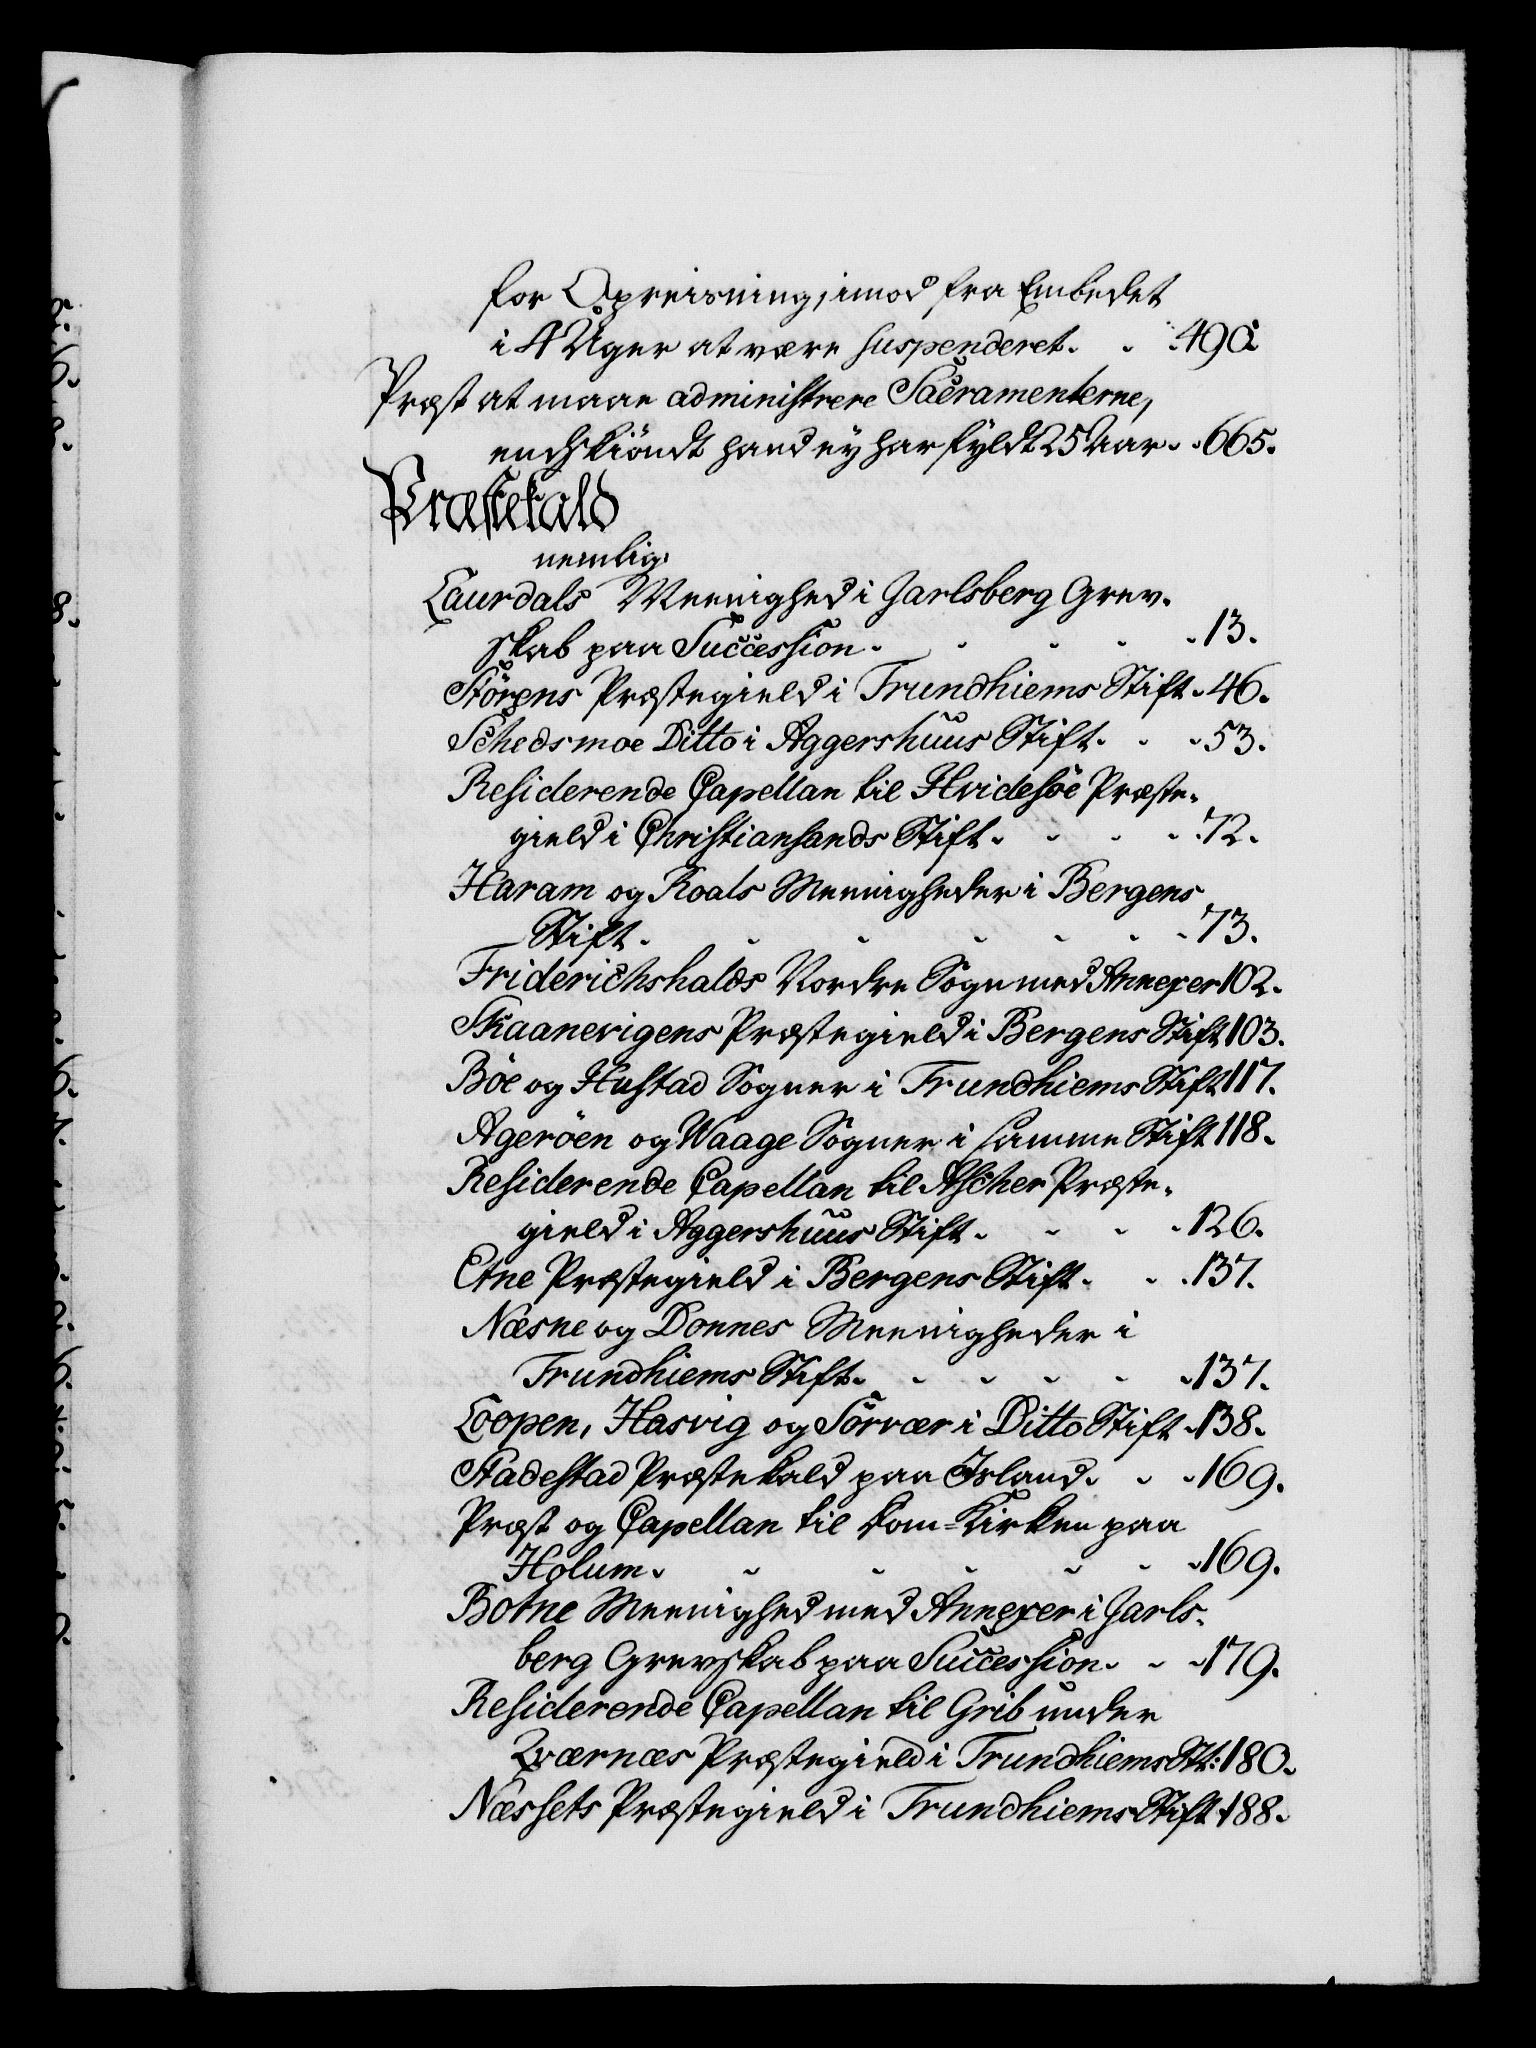 for Opreisning, imod fra Embedet
i 4 Uger at være suspenderet. . . 490.
Præst at maae administrere Sacramenterne,
endskiöndt hand ey har fyldt 25 Aar. . 665.
Præstekald
nemlig:
Laurdals Meenighed i Jarlsberg Grev-
skab paa Succession. . . . . 13.
Störens Præstegield i Trundhiems Stift. 46.
Schedsmoe Ditto i Aggershuus Stift. . . 53.
Residerende Capellan til Hvidesöe Præste-
gield i Christiansands Stift. . . . 72.
Haram og Roals Meenigheder i Bergens
Stift. . . . . . . 73.
Friderichshalds Nordre Sogn med Annexer 102.
Skaanevigens Præstegield i Bergens Stift 103.
Böe og Hustad Sogner i Trundhiems Stift 117.
Ageröen og Waage Sogner i samme Stift 118.
Residerende Capellan til Ascher Præste-
gield i Aggershuus Stift. . . . 126.
Etne Præstegield i Bergens Stift. . . 137.
Næsne og Donnes Meenigheder i
Trundhiems Stift. . . . . . 137.
Loopen, Hasvig og Sörvær i Ditto Stift . 138.
Stadestad Præstekald paa Island. . . 169.
Præst og Capellan til Dom-Kirken paa
Holum. . . . . . . 169.
Botne Meenighed med Annexer i Jarls-
berg Grevskab paa Succession. . . 179.
Residerende Capellan til Grib under
Qværnæs Præstegield i Trundhiems Stt: 180.
Næssets Præstegield i Trundhiems Stift. 188.